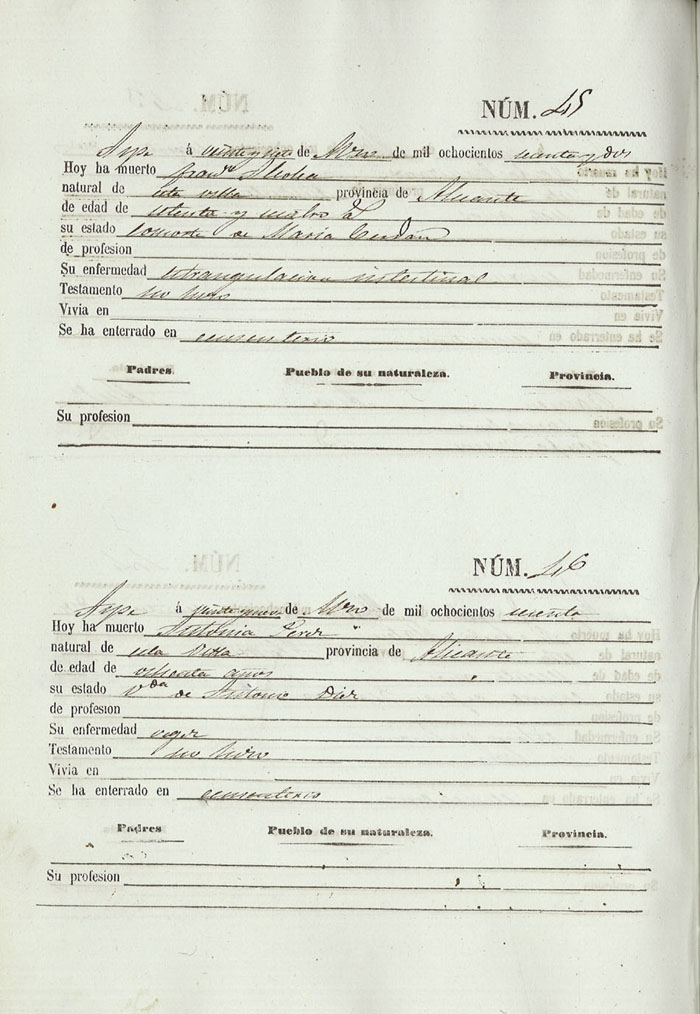 NÚM. 45
Aspe á veinte y de de mil ochocientos sesenta y dos
Hoy ha muerto
natural de esta villa provincia de Alicante
de edad de setenta y cuatro
su estado consorte de Maria Cerdan
de profesion
Su enfermedad estrangulacion intestinal
Testamento no hizo
Vivia en
Se ha enterrado en cementerio
Padres. Pueblo de su naturaleza. Provincia.
Su profesion
NÚM. 46
Aspe á de de mil ochocientos
Hoy ha muerto Antonia
natural de esta villa provincia de Alicante
de edad de ochenta años
su estado Vda de Antonio
de profesion
Su enfermedad vejez
Testamento no hizo
Vivia en
Se ha enterrado en cementerio
Padres Pueblo de su naturaleza. Provincia.
Su profesion